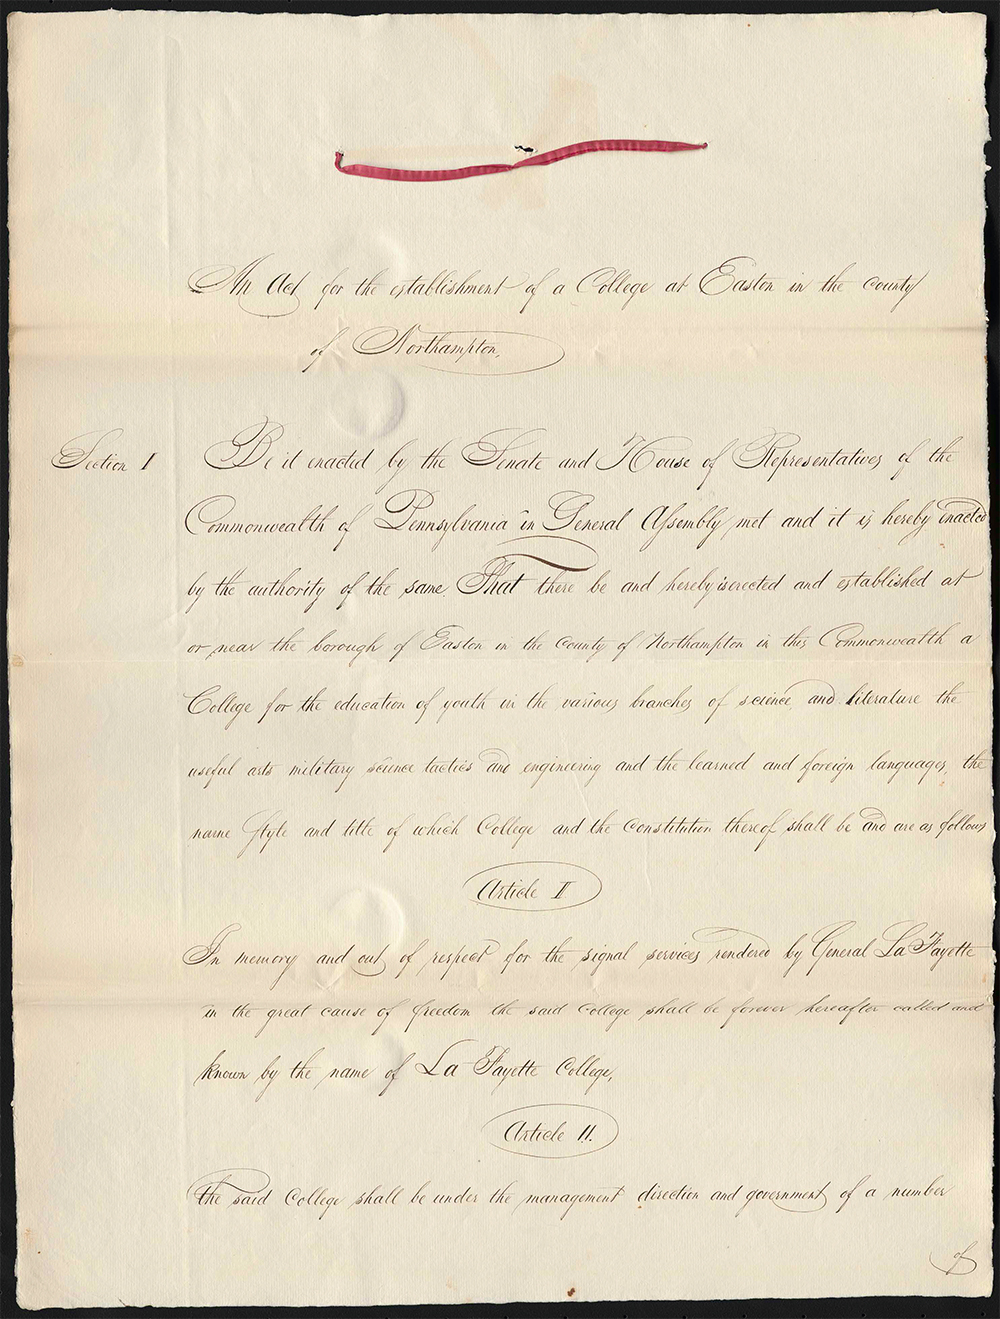 An Act for the establishment of a College at Easton in the county
of Northampton,
Section I Be it enacted by the Senate and House of Representatives of the
Commonwealth of Pennsylvania in General Assembly met and it is hereby enacted
by the authority of the same, That there be and hereby is erected and established at
or near the borough of Easton in the county of Northampton in this Commonwealth a
College for the education of youth in the various branches of science and literature the
useful arts military science tactics and engineering and the learned and foreign languages, the
name style and title of which College and the constitution thereof shall be and are as follows
Article I
In memory and out of respect for the signal services rendered by General La Fayette
in the great cause of freedom the said college shall be forever hereafter called and
known by the name of La Fayette College,
Article II.
The said College shall be under the management direction and government of a number
of